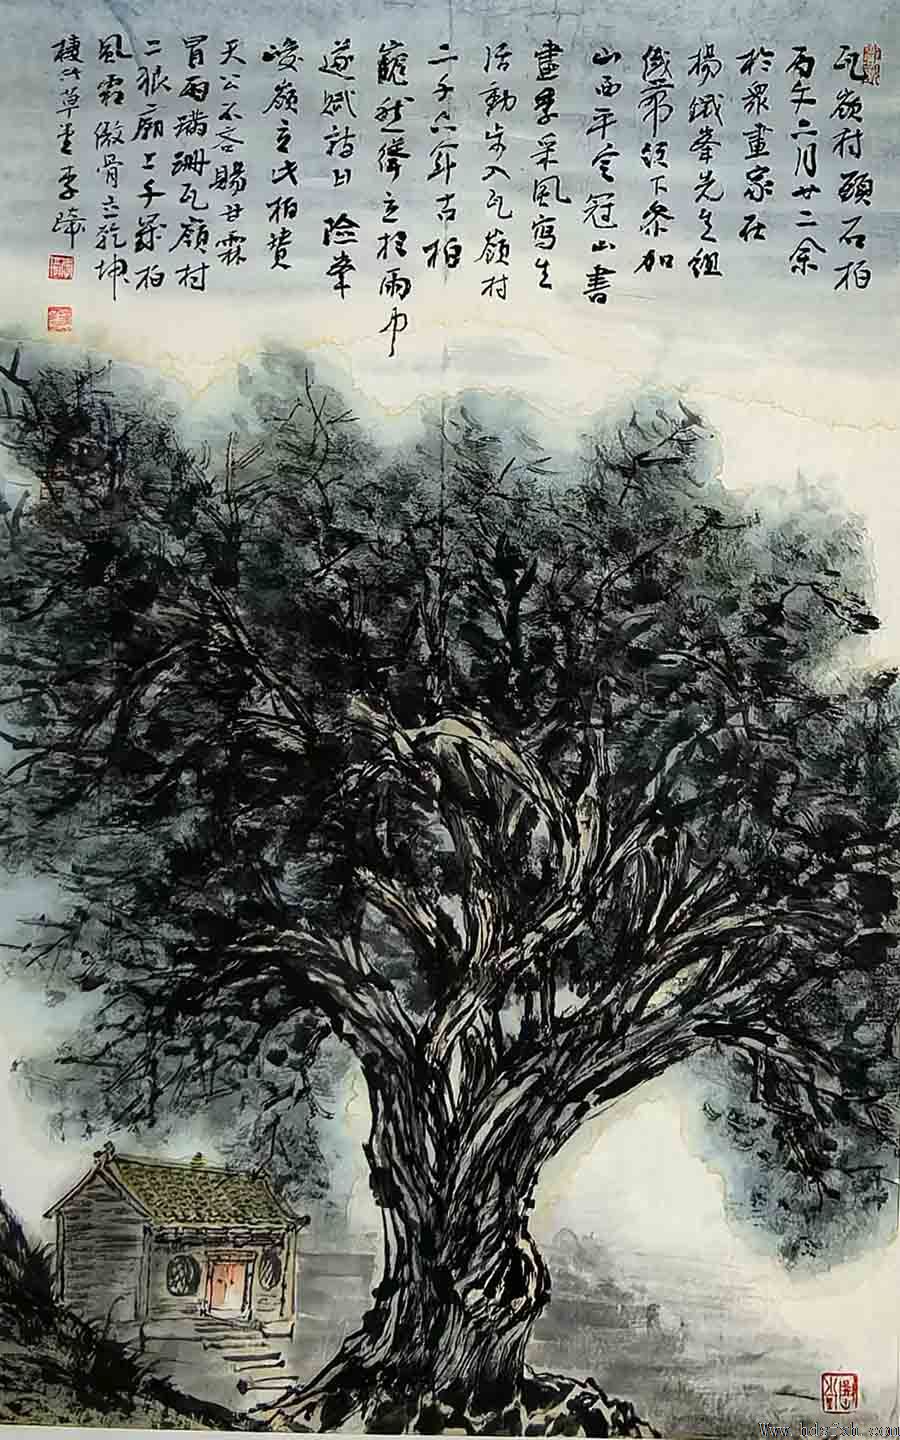 瓦嶺村頭石柏
丙午二月廿二余
於眾畫家在
楊鐵峯先生組
織帶領下參加
山西平定冠山書
畫界采風寫生
活動步入瓦嶺村
二千六年古柏
巍然聳立於雨中
遂賦詩曰 險峯
峻嶺立此柏贊
天公不吝賜甘霖
冒雨蹣跚瓦嶺村
二狼廟上千歲柏
風霜傲骨立乾坤
草堂李
Www.hdsfxh.com